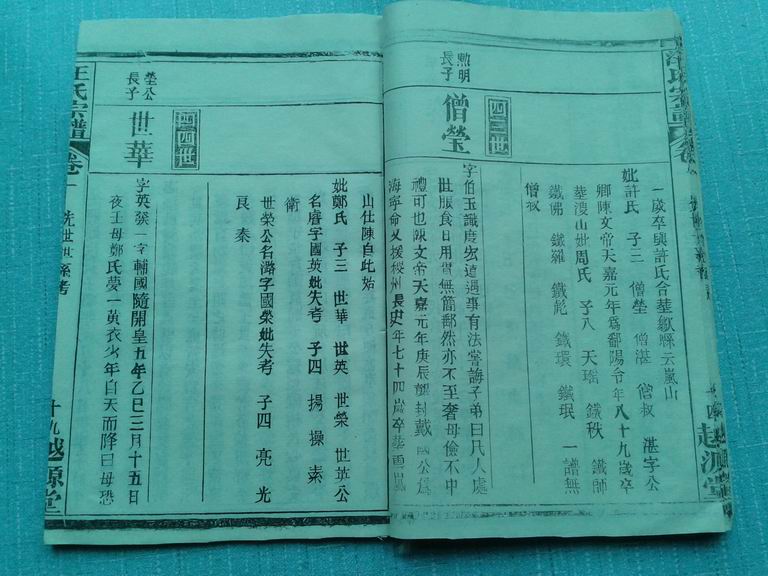 一歲卒與許氏合塟歙縣云嵐山
妣許氏 子三 僧瑩 僧湛 僧叔 湛字公
卿陳文帝天嘉元年為鄱陽令年八十九歲卒
塟淩山妣周氏 子八 天瑶 鐵秩 鐵師
鐵佛 鐵羅 鐵彪 鐵環 鐵珉 一譜無
僧叔
四三世
勲明
長子
僧瑩
字伯玉識度宏遠遇事有法嘗誨子弟曰凡人處
世服食日用胃無簡鄙然亦不至奢母儉不中
禮可也陳文帝天嘉元年庚辰襲封戴國公為
海寧令又援稜州長史年七十四歲卒塟雲嵐
山仕陳自此始
妣鄭氏 子三 世華 世英 世榮 世英公
名睿字國英妣失考 子四 揚 操 素
衛
世榮公名潞字國榮妣失考 子四 亮 光
良 泰
四四世
瑩公
長子
世華
字英發一字輔國隨開皇五年乙巳三月十五日
夜壬母鄭氏夢一黃衣少年自天而降曰母恐
汪氏宗譜
卷一
世系考
十九
越源堂